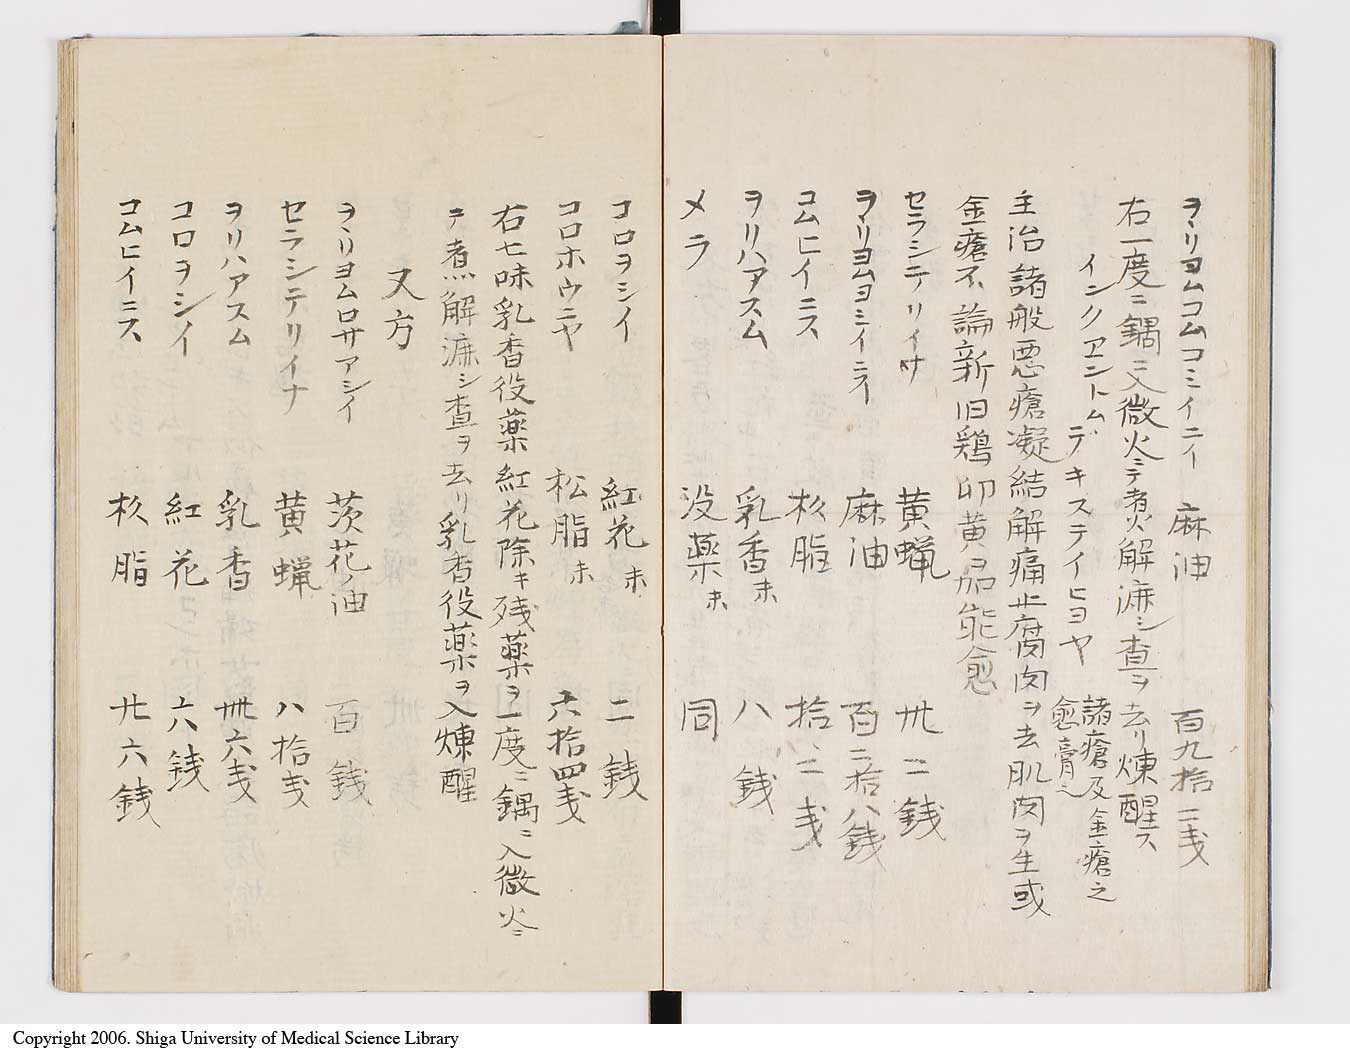 ヲヽリヨムコムコミイニイ 麻油 百九拾二戔
右一度ニ鍋ニ入微火ニテ煮解漉シ査ヲ去リ煉醒ス
インクエントムデキステイヒヨヤ 諸瘡及金瘡之
愈膏之
主治諸般悪瘡凝結解痛止腐肉ヲ去肌肉ヲ生或
金瘡不論新旧鶏卵黄加能愈
セラシテリイナ 黄蝋 卅二銭
ヲヽリヨムヨミイニスイ 麻油 百二拾八銭
コムヒイニス 松脂 拾二戔
ヲリハアスム 乳香末 八銭
メラ 没薬末 同
コロヲシイ 紅花末 二銭
コロホウニヤ 松脂末 六拾四戔
右七味乳香役薬紅花除キ残薬ヲ一度ニ鍋ニ入微火ニ
テ煮解漉シ査ヲ去リ乳香役薬ヲ入煉醒
又方
ヲヽリヨムロサアシイ 茨花ノ油 百銭
セラシテリイナ 黄蝋 八拾戔
ヲリハアスム 乳香 卅六戔
コロヲシイ 紅花 六銭
コムヒイニス 松脂 廿六銭
Copyright 2006. Shiga University of Medical Science Library